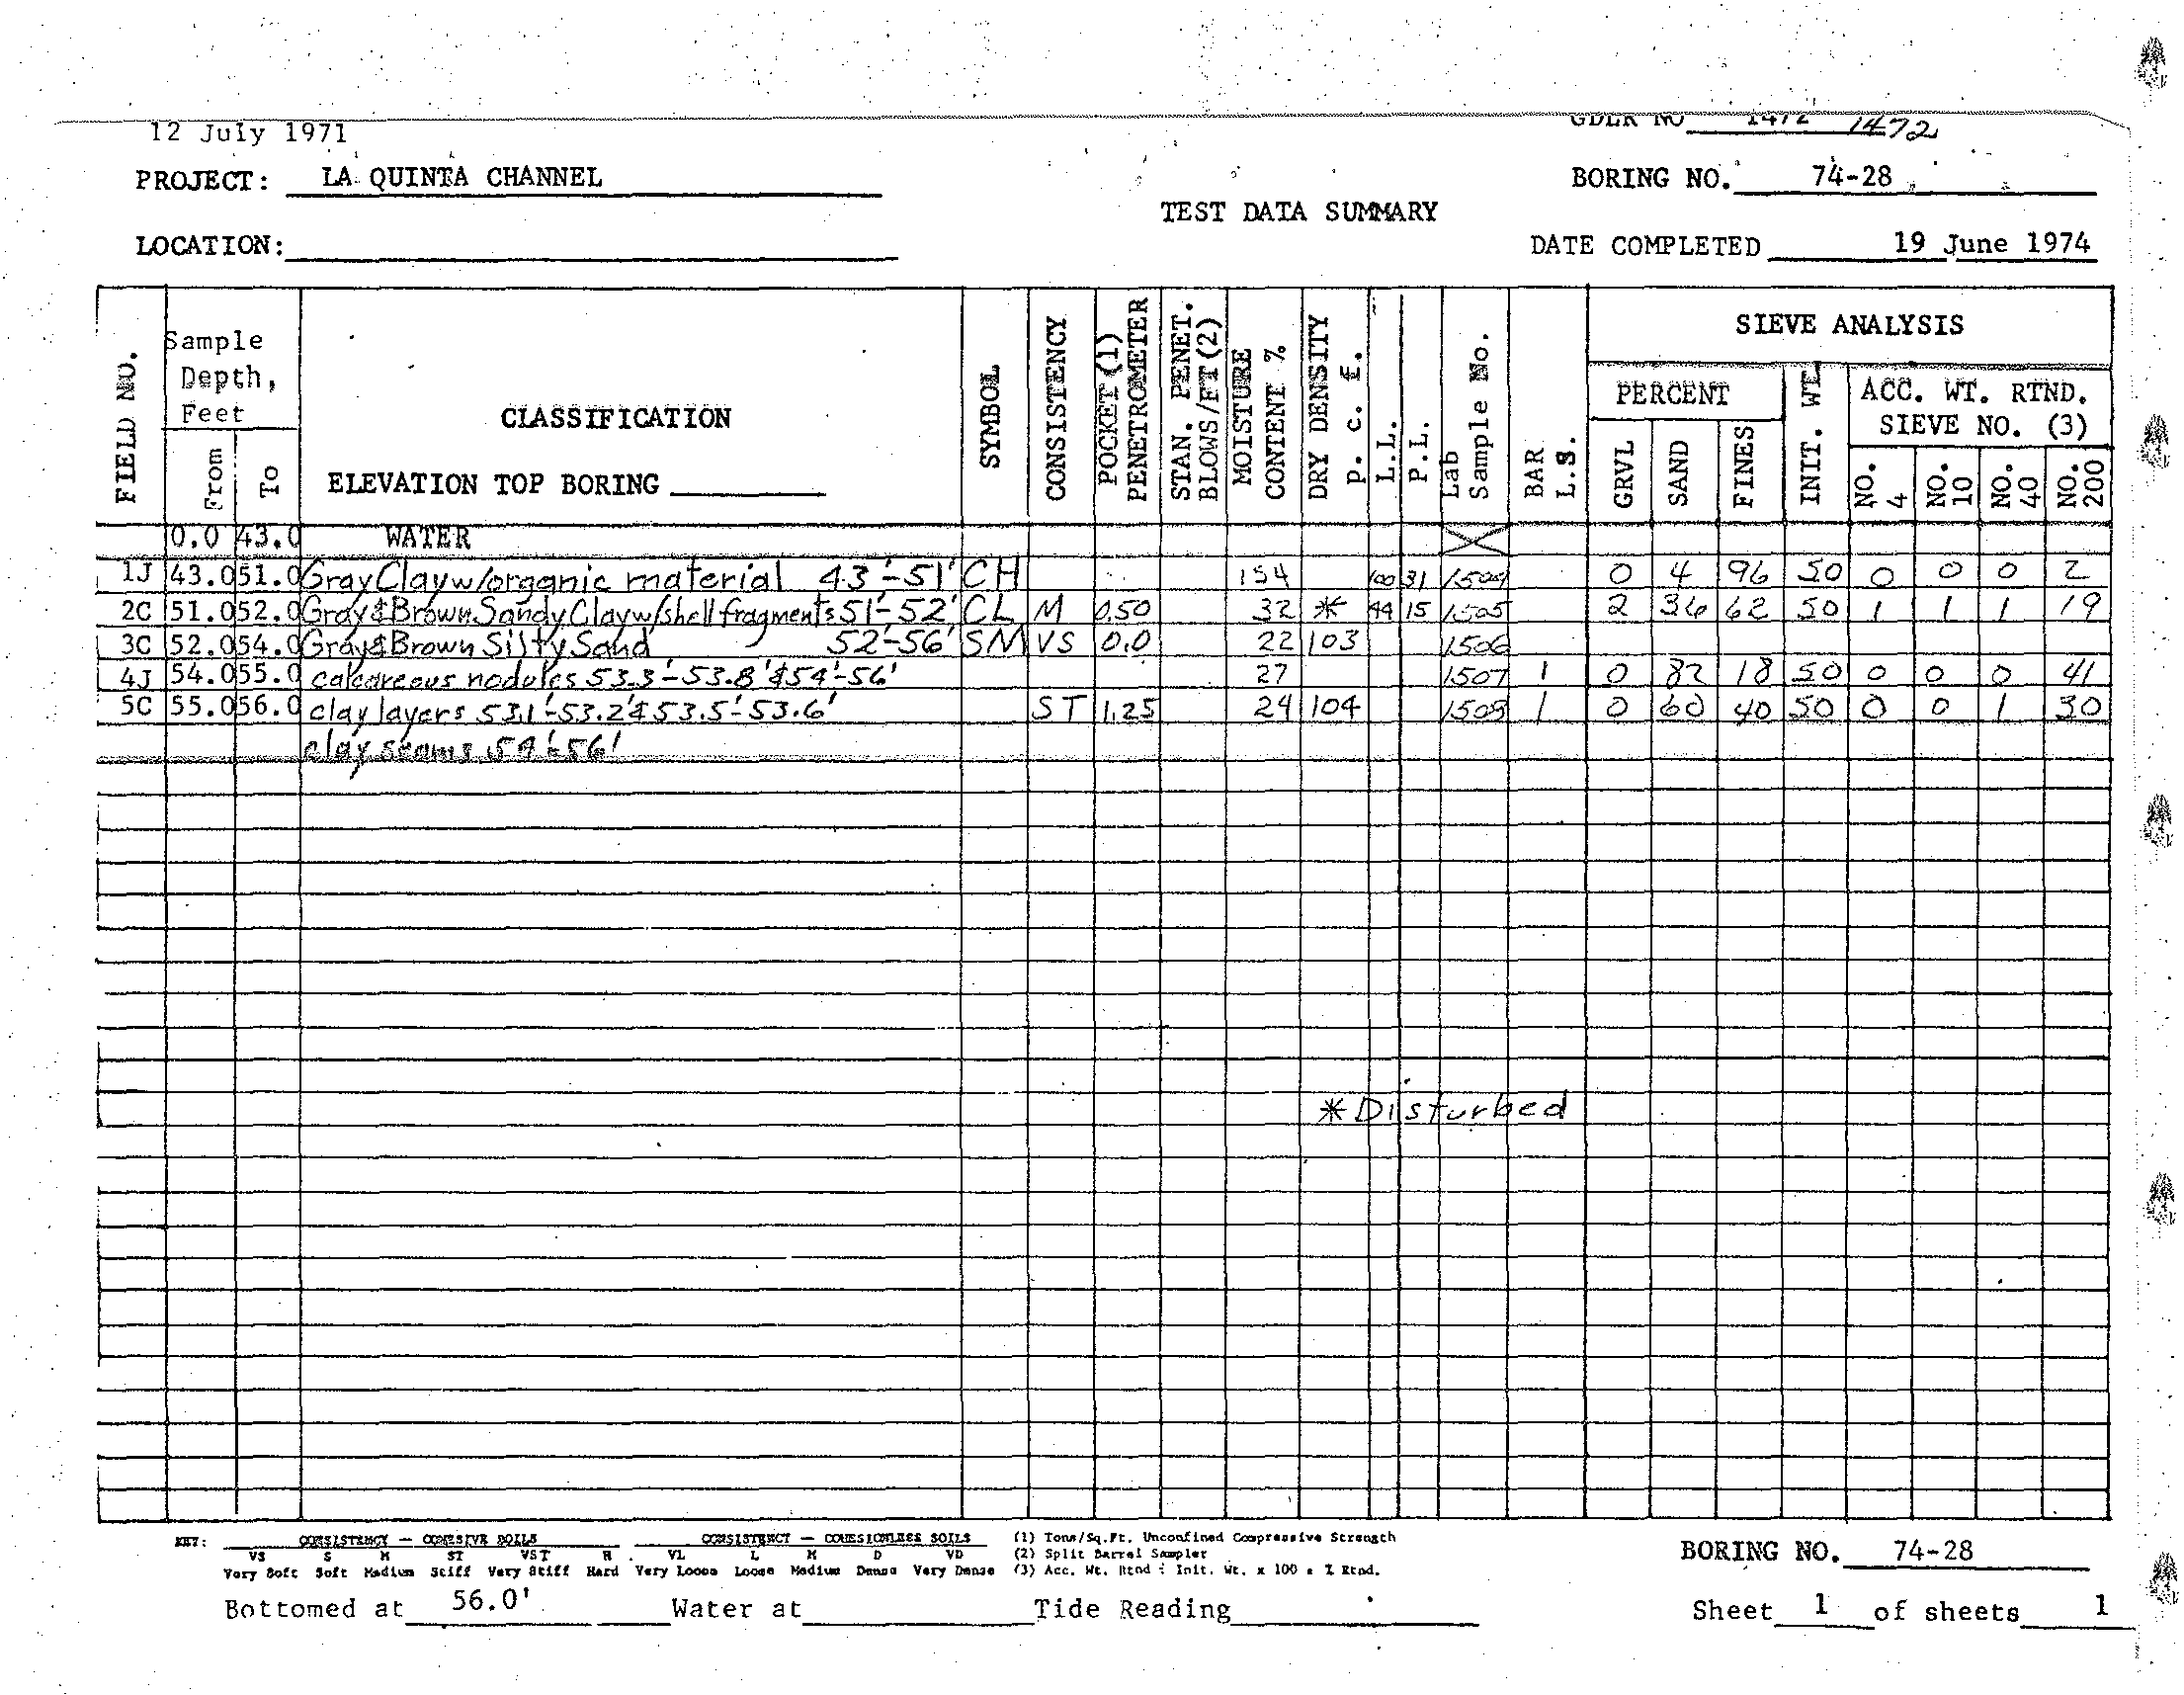 12 July 1971
GDLR NO 1472 1472
PROJECT: LA QUINTA CHANNEL
BORING NO. 74-28
TEST DATA SUMMARY
LOCATION:
DATE COMPLETED 19 June 1974
FIELD NO.
Sample Depth, Feet
From
To
CLASSIFICATION
ELEVATION TOP BORING
SYMBOL
CONSISTENCY
POCKET (1) PENETROMETER
STAN. PENET. BLOWS/FT(2)
MOISTURE CONTENT %
DRY DENSITY p. c. f.
L.L.
P.L.
Lab Sample No.
BAR L.S.
SIEVE ANALYSIS
PERCENT
GRVL
SAND
FINES
INIT. WT.
ACC. WT. RTND. SIEVE NO. (3)
NO. 4
NO. 10
NO. 40
NO. 200
0.0 43.0 WATER
1J 43.0 51.0 Gray Clay w/organic material 43'-51' CH 154 100 31 1504 0 4 96 50 0 0 0 2
2C 51.0 52.0 Gray & Brown Sandy Clay w/shell fragments 51'-52' CL M 0.50 32 * 44 15 1505 2 36 62 50 1 1 1 19
3C 52.0 54.0 Gray & Brown Silty Sand 52'-56' SM VS 0.0 22 103 1506
4J 54.0 55.0 calcareous nodules 53.3'-53.8' & 54'-56' 27 1507 1 0 82 18 50 0 0 0 41
5C 55.0 56.0 clay layers 53.1'-53.2' & 53.5'-53.6' ST 1.25 24 104 1508 1 0 60 40 50 0 0 1 30
clay seams 54'-56'
* Disturbed
KEY: CONSISTENCY — COHESIVE SOILS CONSISTENCY — COHESIONLESS SOILS (1) Tons/Sq.Ft. Unconfined Compressive Strength
VS S M ST VST H VL L M D VD (2) Split Barrel Sampler
Very Soft Soft Medium Stiff Very Stiff Hard Very Loose Loose Medium Dense Very Dense (3) Acc. Wt. Rtnd ÷ Init. Wt. x 100 = % Rtnd.
BORING NO. 74-28
Bottomed at 56.0' Water at Tide Reading
Sheet 1 of sheets 1